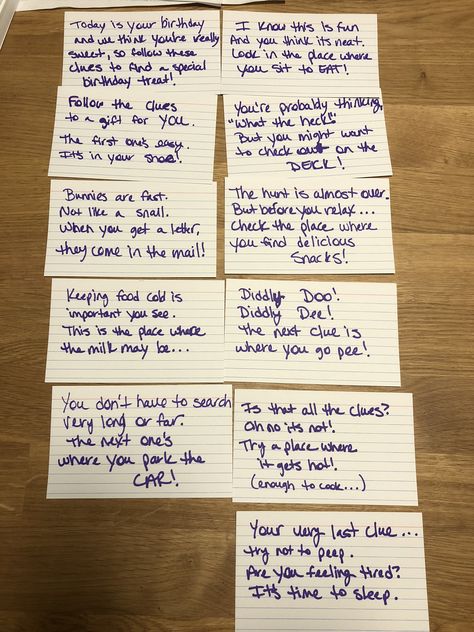 Today is your birthday
and we think you're really
sweet, so follow these
clues to find a special
birthday treat!
I know this is fun
And you think its neat.
Look in the place where
you sit to EAT!
Follow the clues
to a gift for you.
The first one's easy.
It's in your shoe!
You're probably thinking,
"What the heck!"
But you might want
to check on the
DECK!
Bunnies are fast.
Not like a snail.
When you get a letter,
they come in the mail!
The hunt is almost over.
But before you relax...
Check the place where
you find delicious
Snacks!
Keeping food cold is
important you see.
This is the place where
the milk may be...
Diddly Doo!
Diddly Dee!
The next clue is
where you go pee!
You don't have to search
very long or far.
The next one's
where you park the
CAR!
Is that all the clues?
Oh no it's not!
Try a place where
it gets hot!
(enough to cook...)
Your very last clue...
try not to peep.
Are you feeling tired?
It's time to sleep.